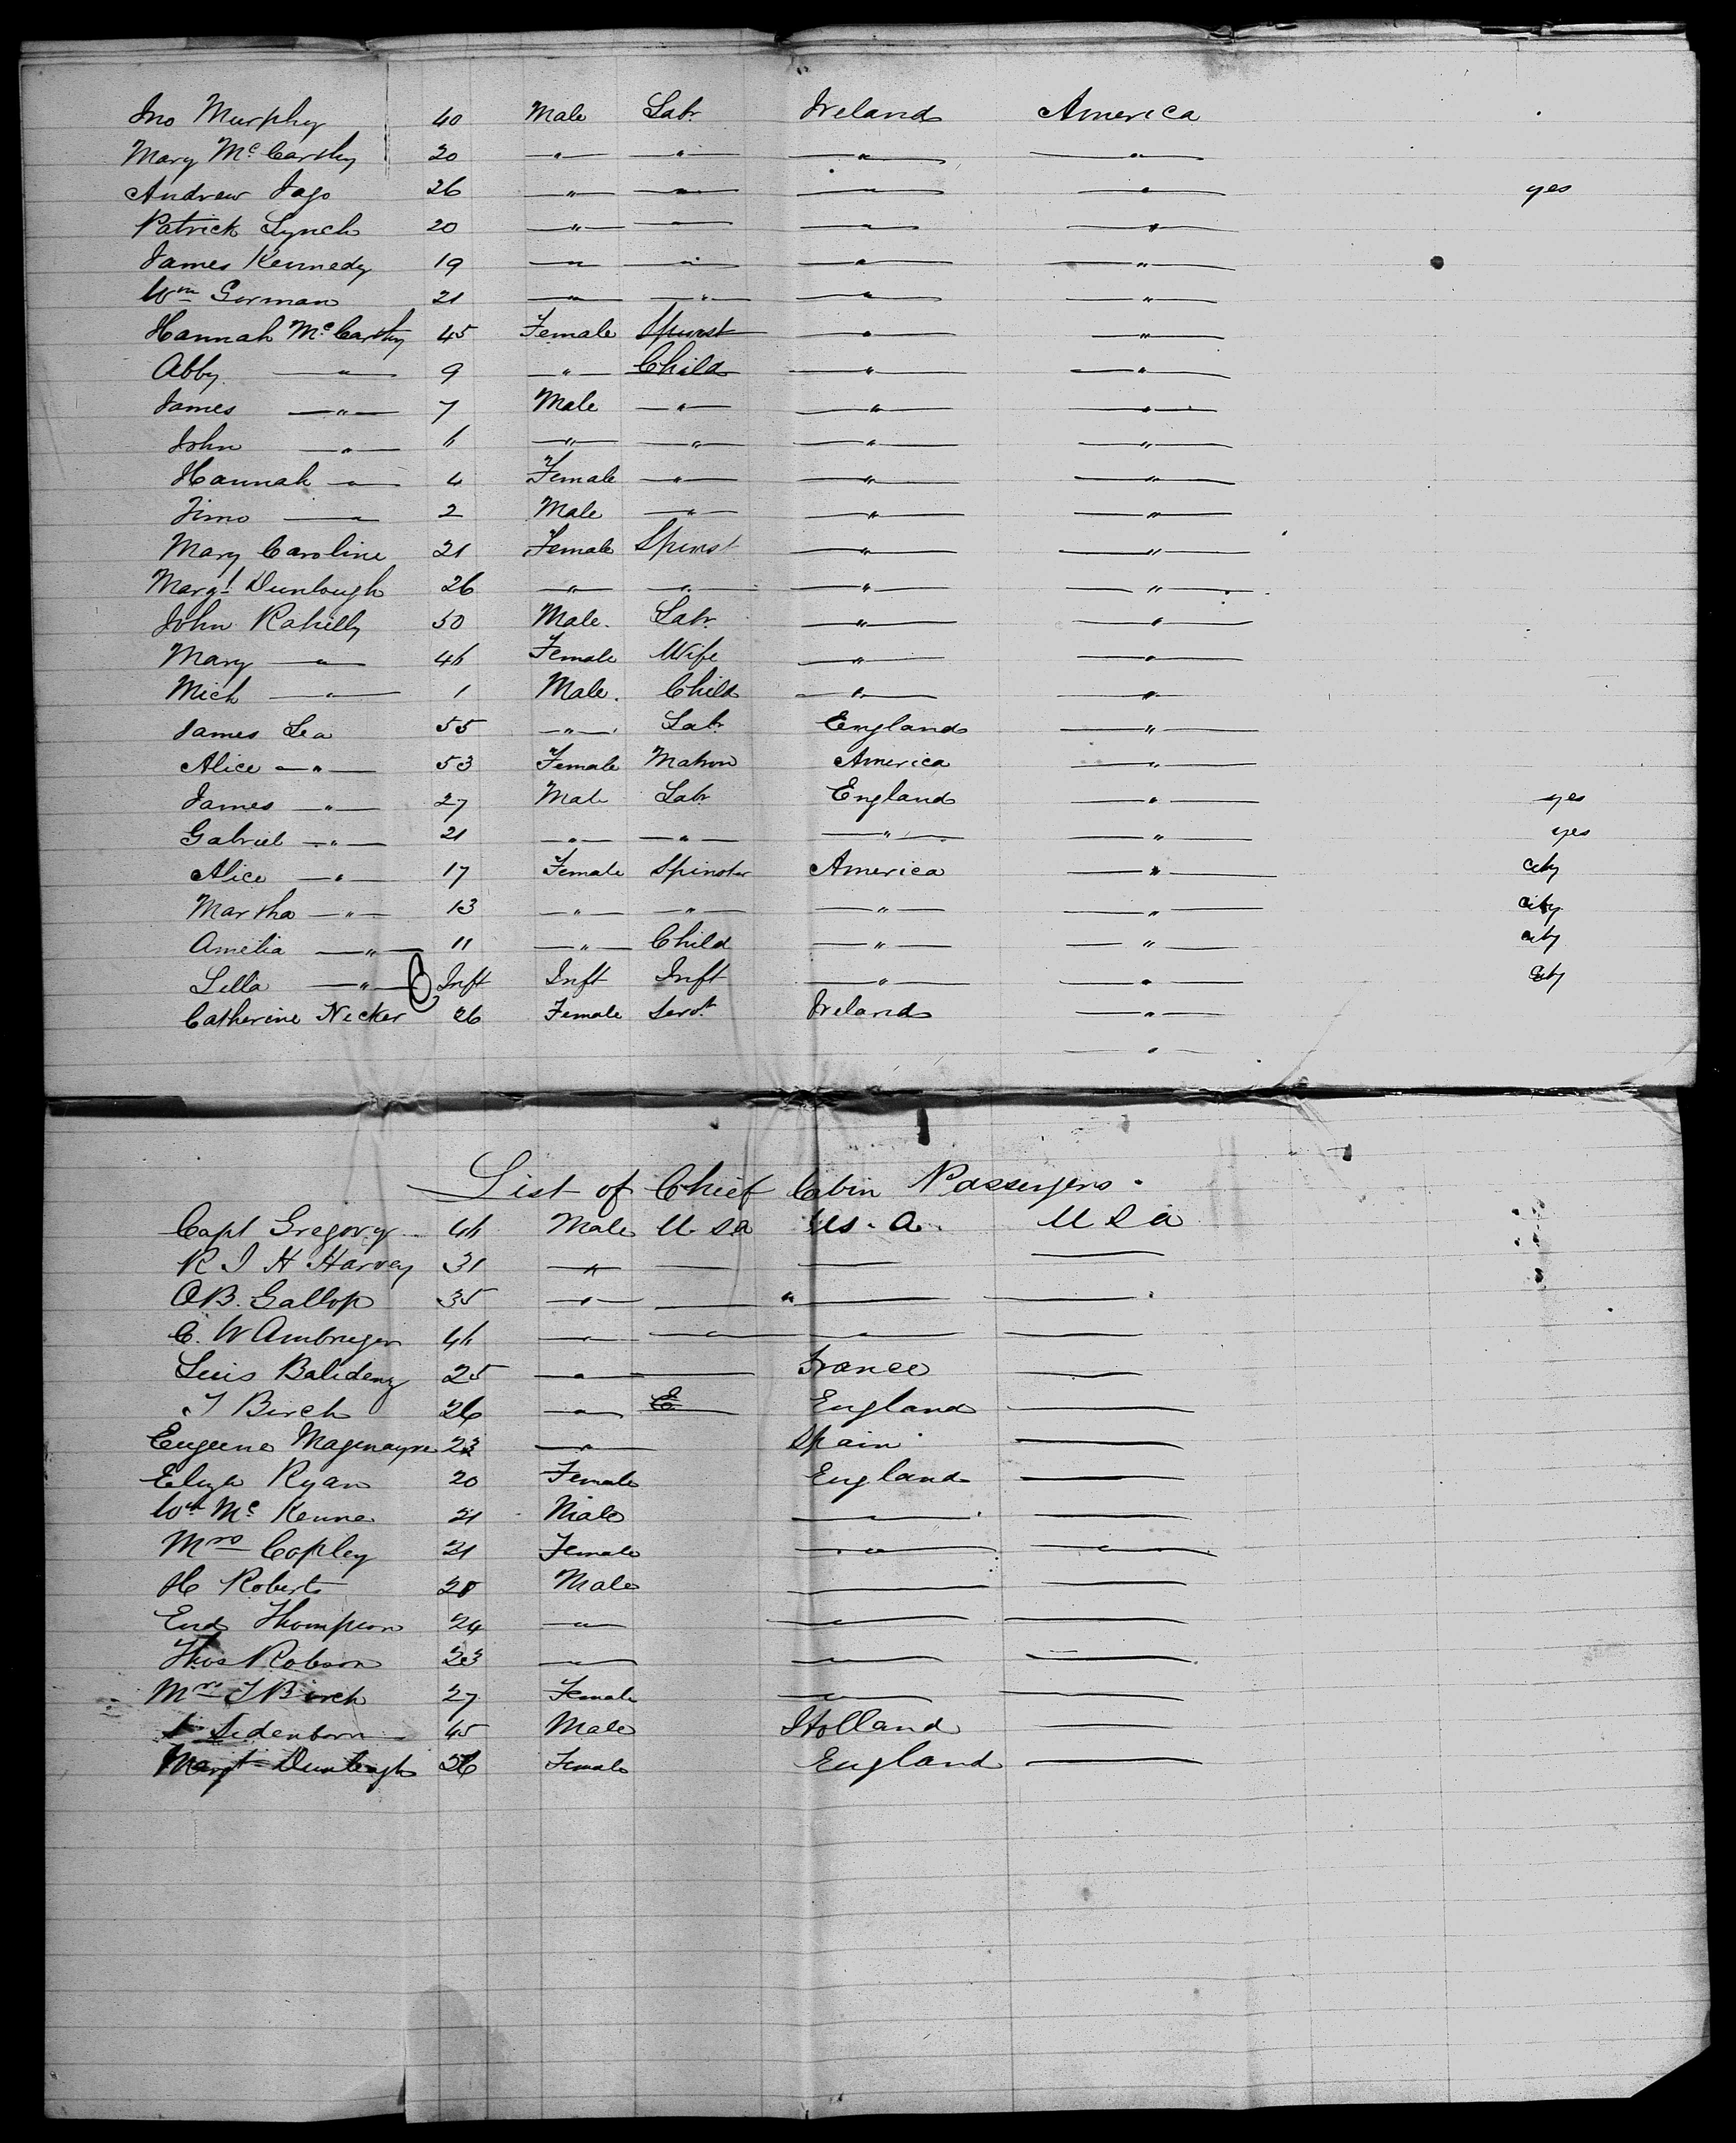 Jno Murphy 40 Male Labr Ireland America
Mary McCarthy 20 " " " "
Andrew Jago 26 " " " " yes
Patrick Lynch 20 " " " "
James Kennedy 19 " " " "
Wm Gorman 21 " " " "
Hannah McCarthy 45 Female Spinst " "
Abby " 9 " Child " "
James " 7 Male " " "
John " 6 " " " "
Hannah " 4 Female " " "
Timo " 2 Male " " "
Mary Caroline 21 Female Spinst " "
Margt Dunlough 26 " " " "
John Rahilly 50 Male Labr " "
Mary " 46 Female Wife " "
Mich " 1 Male Child " "
James Lea 55 " Labr England "
Alice " 53 Female Matron America "
James " 27 Male Labr England " yes
Gabriel " 21 " " " " yes
Alice " 17 Female Spinster America " city
Martha " 13 " " " " city
Amelia " 11 " Child " " city
Lilla " Inft Inft Inft " " city
Catherine Necker 26 Female Servt Ireland "
"
List of Chief Cabin Passengers.
Capt Gregory 46 Male U S A U S. A. U S A
R J H Harvey 31 "
O B. Gallop 35 " "
C. W 46 " " "
Luis 25 " France
T Birch 26 " England
Eugene 23 " Spain
Eliza Ryan 20 Female England
Wm McKenna 21 Male
Mrs Copley 21 Female " "
H Roberts 28 Male
Thompson 24 " "
Thos Robson 23
Mrs T Birch 27 Female "
45 Male Holland
Margt Dunleagh 26 Female England